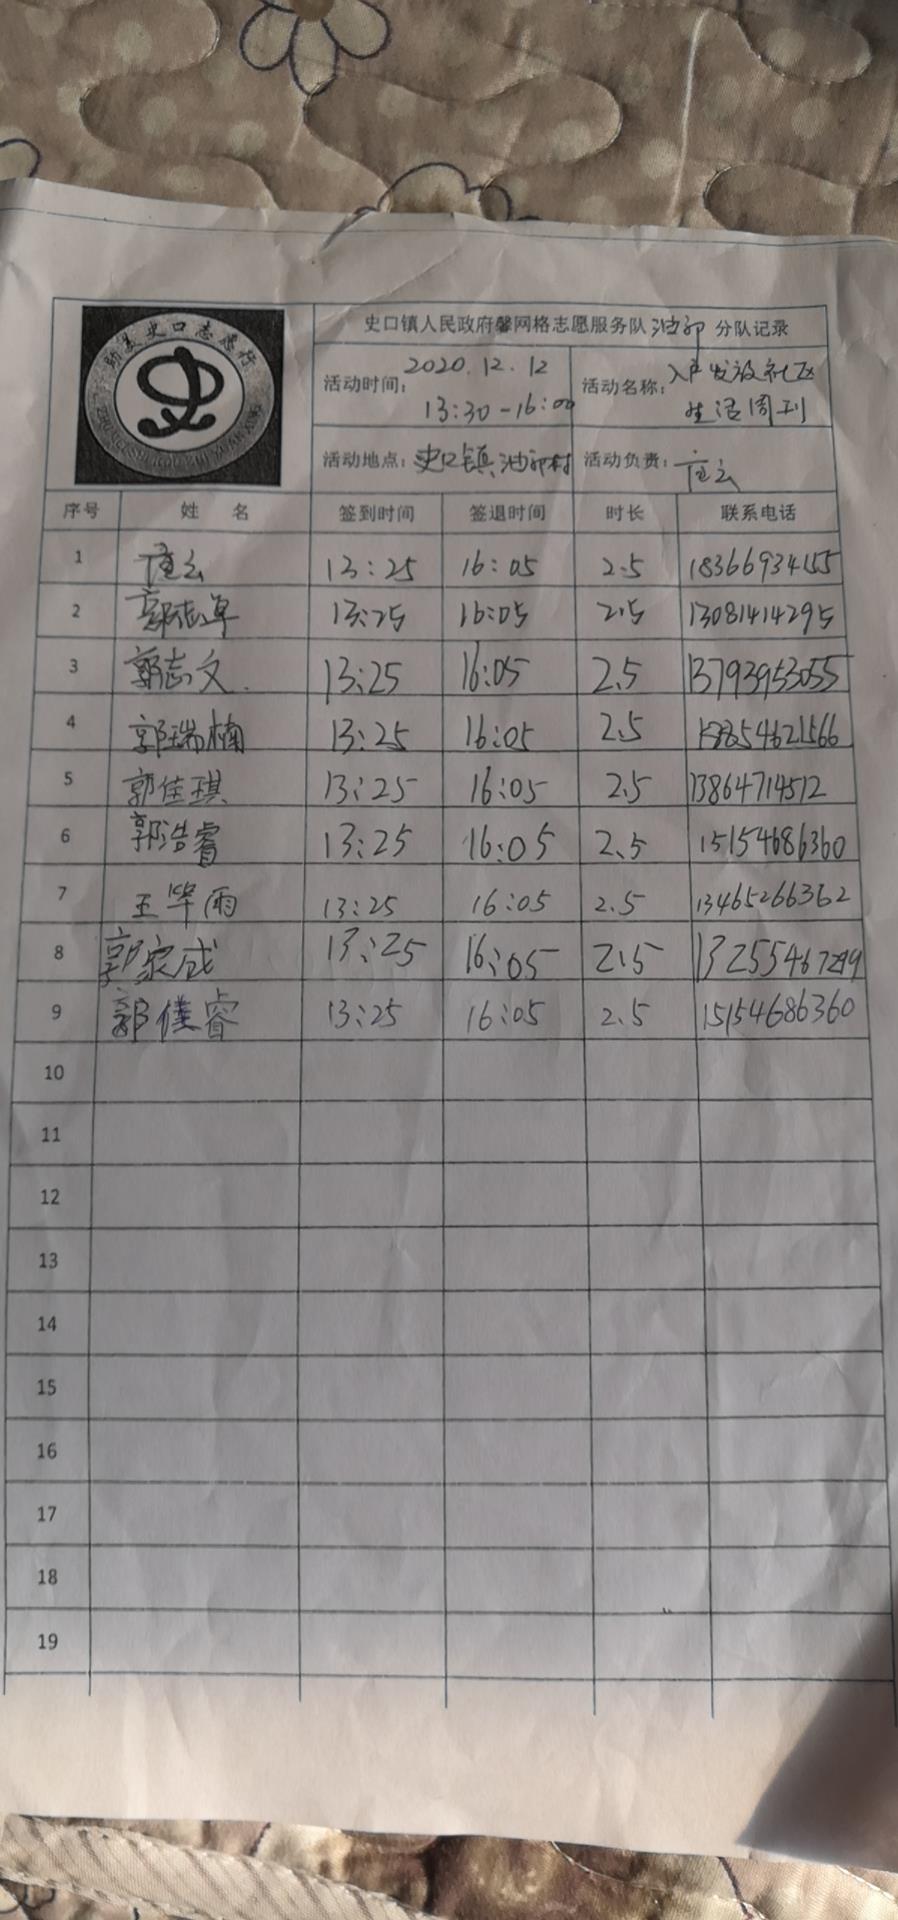 助美史口志愿行
ZHUMEISHIKOU ZHI YUAN XING
史口镇人民政府馨网格志愿服务队油郭 分队记录
活动时间: 2020.12.12 13:30-16:00
活动名称: 入户发放社区生活周刊
活动地点: 史口镇油郭村 活动负责:
序号 姓 名 签到时间 签退时间 时长 联系电话
1 13:25 16:05 2.5 18366934155
2 郭志军 13:25 16:05 2.5 13081414295
3 郭志文 13:25 16:05 2.5 13793953055
4 郭瑞楠 13:25 16:05 2.5
5 郭佳琪 13:25 16:05 2.5 13864714512
6 郭浩睿 13:25 16:05 2.5 15154686360
7 王笔雨 13:25 16:05 2.5 13465266362
8 郭家成 13:25 16:05 2.5
9 郭僕睿 13:25 16:05 2.5 15154686360
10
11
12
13
14
15
16
17
18
19